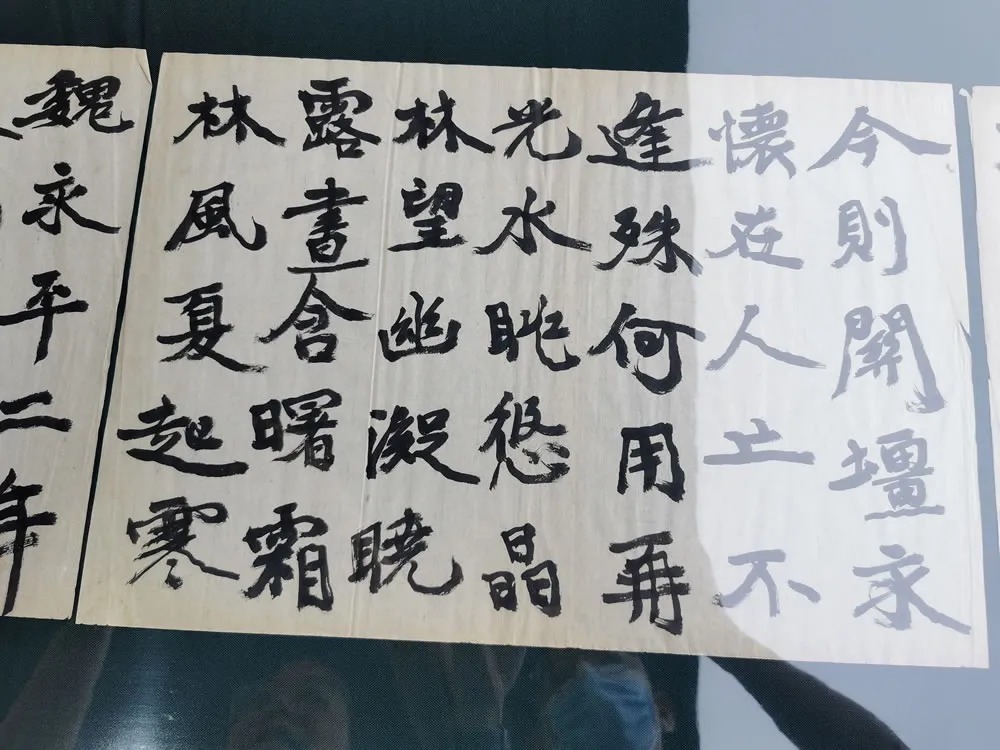 今則關壃永
懷在人亡不
逢殊何用再
光水眺悠晶
林望幽凝曉
露晝含曙霜
林風夏起寒
魏永平二年